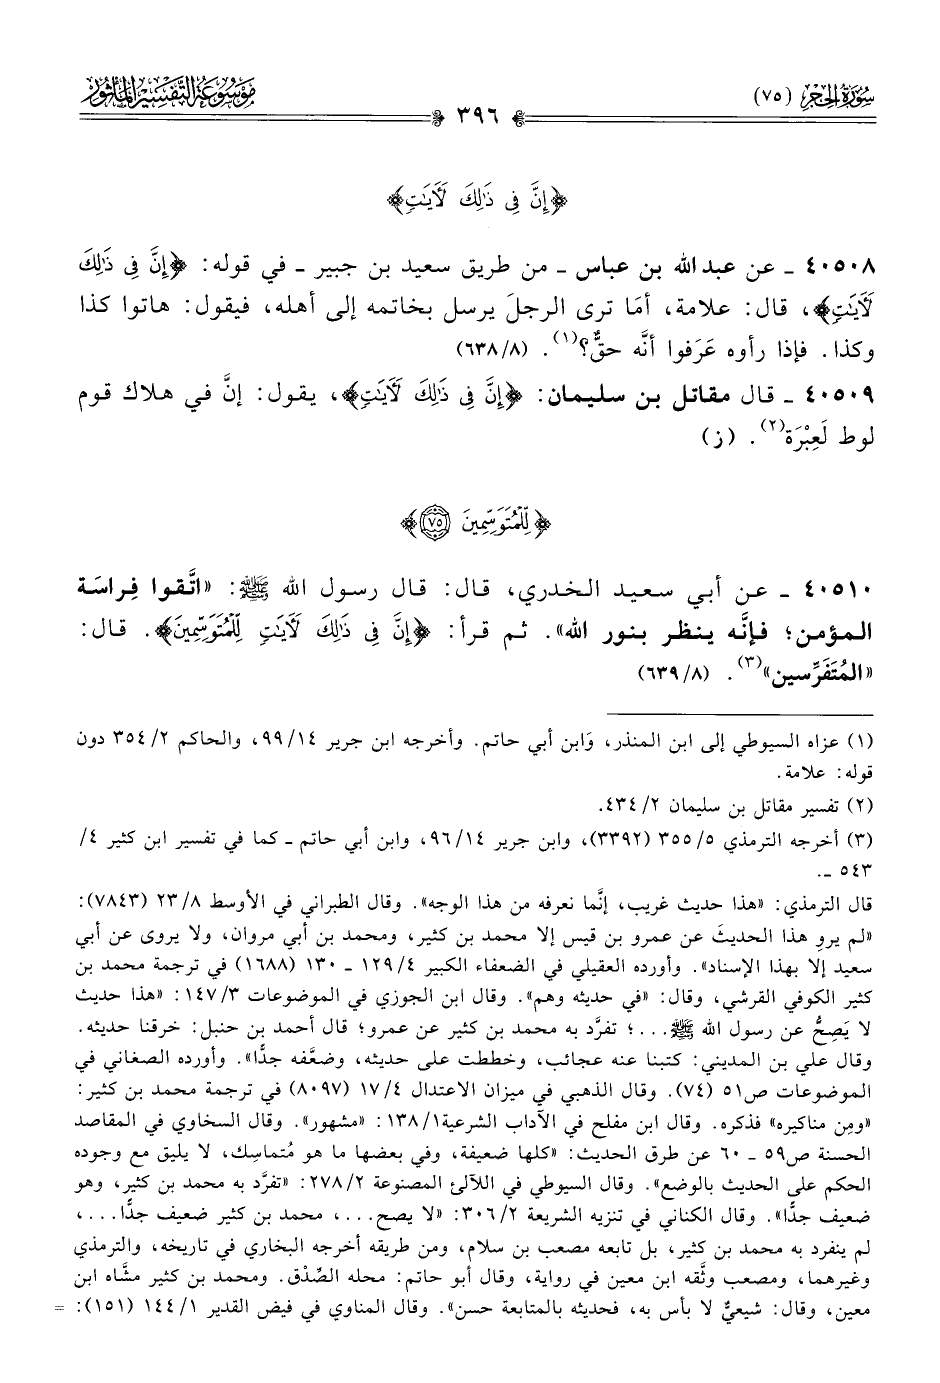 سُورَةُ الحِجْرِ (٧٥)
٣٩٦
مَوْسُوعَةُ التَّفْسِيرِ المَأْثُورِ
﴿إِنَّ فِى ذَٰلِكَ لَـَٔايَـٰتٍ﴾
٤٠٥٠٨ ـ عن عبد الله بن عباس ـ من طريق سعيد بن جبير ـ في قوله: ﴿إِنَّ فِى ذَٰلِكَ
لَـَٔايَـٰتٍ﴾، قال: علامة، أمَا ترى الرجلَ يرسل بخاتمه إلى أهله، فيقول: هاتوا كذا
وكذا. فإذا رأوه عَرَفوا أنَّه حقٌّ؟(١). (٦٣٨/٨)
٤٠٥٠٩ ـ قال مقاتل بن سليمان: ﴿إِنَّ فِى ذَٰلِكَ لَـَٔايَـٰتٍ﴾، يقول: إنَّ في هلاك قوم
لوط لَعِبْرَة(٢). (ز)
﴿لِّلْمُتَوَسِّمِينَ ٧٥﴾
٤٠٥١٠ ـ عن أبي سعيد الخدري، قال: قال رسول الله ﷺ: «اتَّقوا فِراسَة
المؤمن؛ فإنَّه ينظر بنور الله». ثم قرأ: ﴿إِنَّ فِى ذَٰلِكَ لَـَٔايَـٰتٍ لِّلْمُتَوَسِّمِينَ﴾. قال:
«المُتَفَرِّسين»(٣). (٦٣٩/٨)
(١) عزاه السيوطي إلى ابن المنذر، وَابن أبي حاتم. وأخرجه ابن جرير ٩٩/١٤، والحاكم ٣٥٤/٢ دون
قوله: علامة.
(٢) تفسير مقاتل بن سليمان ٤٣٤/٢.
(٣) أخرجه الترمذي ٣٥٥/٥ (٣٣٩٢)، وابن جرير ٩٦/١٤، وابن أبي حاتم ـ كما في تفسير ابن كثير ٤/
٥٤٣ ـ.
قال الترمذي: «هذا حديث غريب، إنَّما نعرفه من هذا الوجه». وقال الطبراني في الأوسط ٢٣/٨ (٧٨٤٣):
«لم يروِ هذا الحديثَ عن عمرو بن قيس إلا محمد بن كثير، ومحمد بن أبي مروان، ولا يروى عن أبي
سعيد إلا بهذا الإسناد». وأورده العقيلي في الضعفاء الكبير ١٢٩/٤ ـ ١٣٠ (١٦٨٨) في ترجمة محمد بن
كثير الكوفي القرشي، وقال: «في حديثه وهم». وقال ابن الجوزي في الموضوعات ١٤٧/٣: «هذا حديث
لا يَصِحُّ عن رسول الله ﷺ...؛ تفرَّد به محمد بن كثير عن عمرو؛ قال أحمد بن حنبل: خرقنا حديثه.
وقال علي بن المديني: كتبنا عنه عجائب، وخططت على حديثه، وضعَّفه جدًّا». وأورده الصغاني في
الموضوعات ص٥١ (٧٤). وقال الذهبي في ميزان الاعتدال ١٧/٤ (٨٠٩٧) في ترجمة محمد بن كثير:
«ومِن مناكيره» فذكره. وقال ابن مفلح في الآداب الشرعية١٣٨/١: «مشهور». وقال السخاوي في المقاصد
الحسنة ص٥٩ ـ ٦٠ عن طرق الحديث: «كلها ضعيفة، وفي بعضها ما هو مُتماسِك، لا يليق مع وجوده
الحكم على الحديث بالوضع». وقال السيوطي في اللآلئ المصنوعة ٢٧٨/٢: «تفرَّد به محمد بن كثير، وهو
ضعيف جدًّا». وقال الكناني في تنزيه الشريعة ٣٠٦/٢: «لا يصح...، محمد بن كثير ضعيف جدًّا...،
لم ينفرد به محمد بن كثير، بل تابعه مصعب بن سلام، ومن طريقه أخرجه البخاري في تاريخه، والترمذي
وغيرهما، ومصعب وثَّقه ابن معين في رواية، وقال أبو حاتم: محله الصِّدْق. ومحمد بن كثير مشَّاه ابن
معين، وقال: شيعيٌّ لا بأس به، فحديثه بالمتابعة حسن». وقال المناوي في فيض القدير ١٤٤/١ (١٥١): =